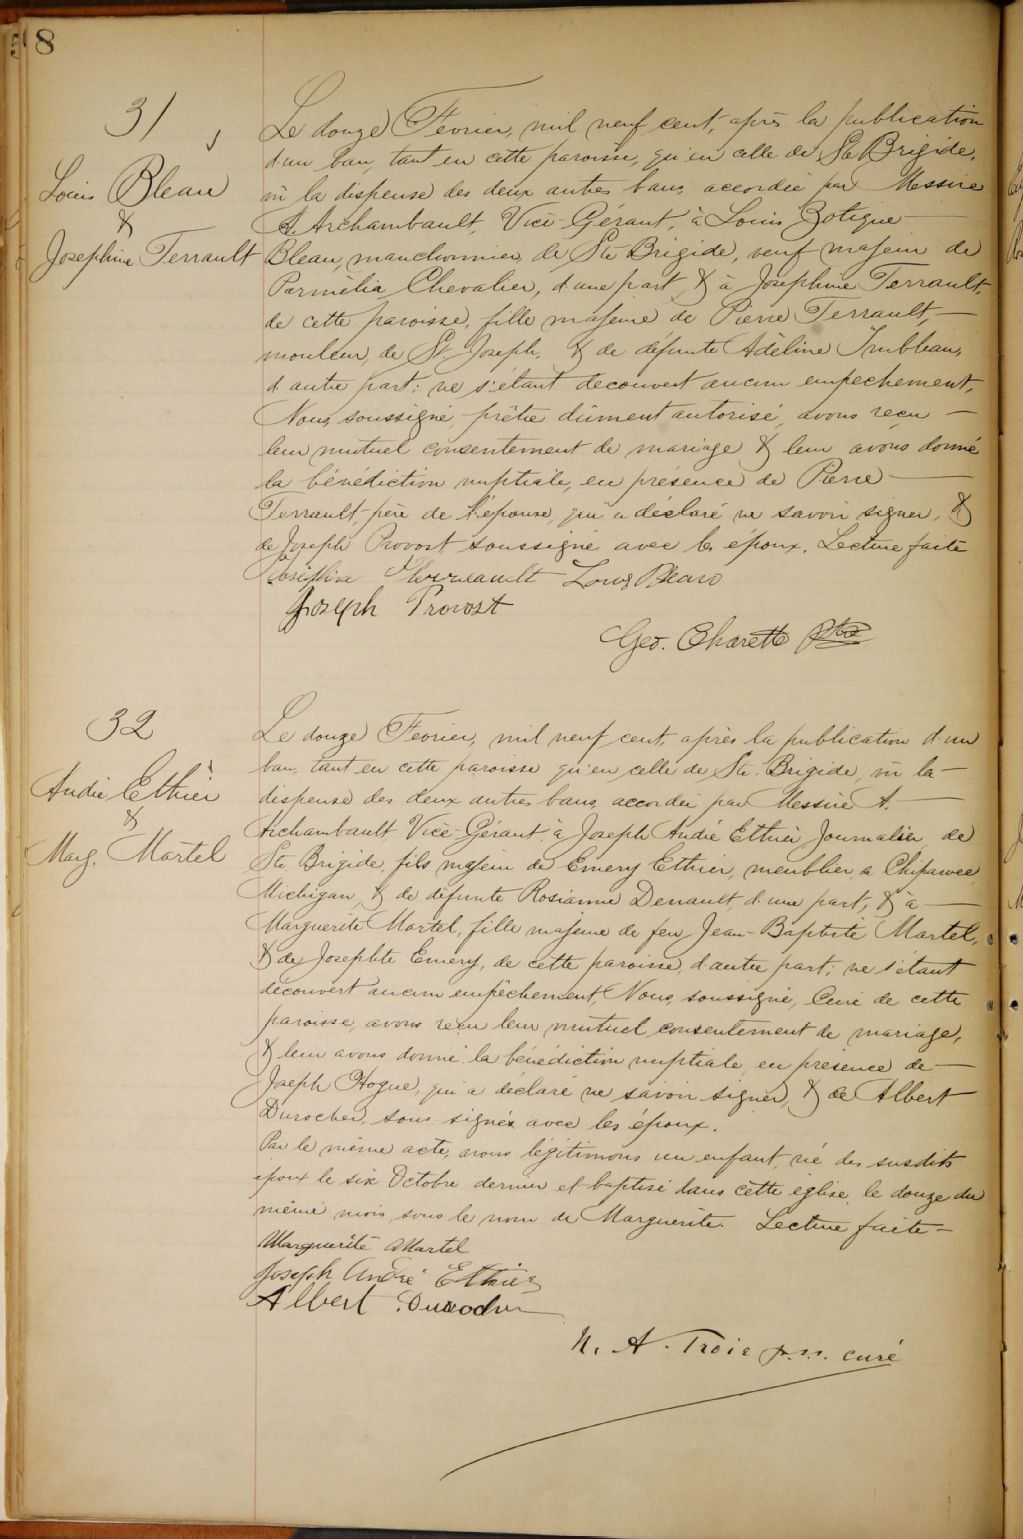 8
31
Louis Bleau
&
Josephine Terrault
Le douze Février, mil neuf cent, après la publication
d'un ban, tant en cette paroisse, qu'en celle de Ste Brigide,
vû la dispense des deux autres bans, accordée par Messire
A. Archambault, Vice-Gérant, à Louis Zotique
Bleau, manchonnier, de Ste Brigide, veuf majeur de
Parmélia Chevalier, d'une part, & à Josephine Terrault,
de cette paroisse, fille majeure de Pierre Terrault,
mouleur, de St Joseph, & de défunte Adèline Imbleau,
d'autre part; ne s'étant decouvert aucun empechement,
Nous, soussigné, prêtre dûment autorisé, avons reçu
leur mutuel consentement de mariage & leur avons donné
la bénédiction nuptiale, en présence de Pierre
Terrault, père de l'épouse, qui a déclaré ne savoir signer, &
de Joseph Provost soussigné avec les époux. Lecture faite
Joséphine Therreault Louis Bleau
Joseph Provost
Geo. Charette Ptre
32
André Ethier
&
Marg. Martel
Le douze Février, mil neuf cent, après la publication d'un
ban, tant en cette paroisse qu'en celle de Ste Brigide, vû la
dispense des deux autres bans, accordée par Messire A.
Archambault Vice-Gérant à Joseph André Ethier Journalier, de
Ste Brigide, fils majeur de Emery Ethier, meublier a Chipawee
Michigan, & de défunte Rosianne Denault, d'une part, & à
Marguerite Martel, fille majeure de feu Jean-Baptiste Martel,
& de Josephte Emery, de cette paroisse, d'autre part; ne s'étant
découvert aucun empêchement, Nous, soussigné, Curé de cette
paroisse, avons reçu leur mutuel consentement de mariage,
& leur avons donné la bénédiction nuptiale, en présence de
Joseph Hogue, qui a déclaré ne savoir signer, & de Albert
Durocher, sous-signés avec les époux.
Par le même acte, avons légitimons un enfant, né des susdits
époux le six Octobre dernier et baptisé dans cette église, le douze du
même mois, sous le nom de Marguerite. Lecture faite
Marguerite Martel
Joseph André Ethier
Albert Durocher
N. A. Troie p.s.s. curé